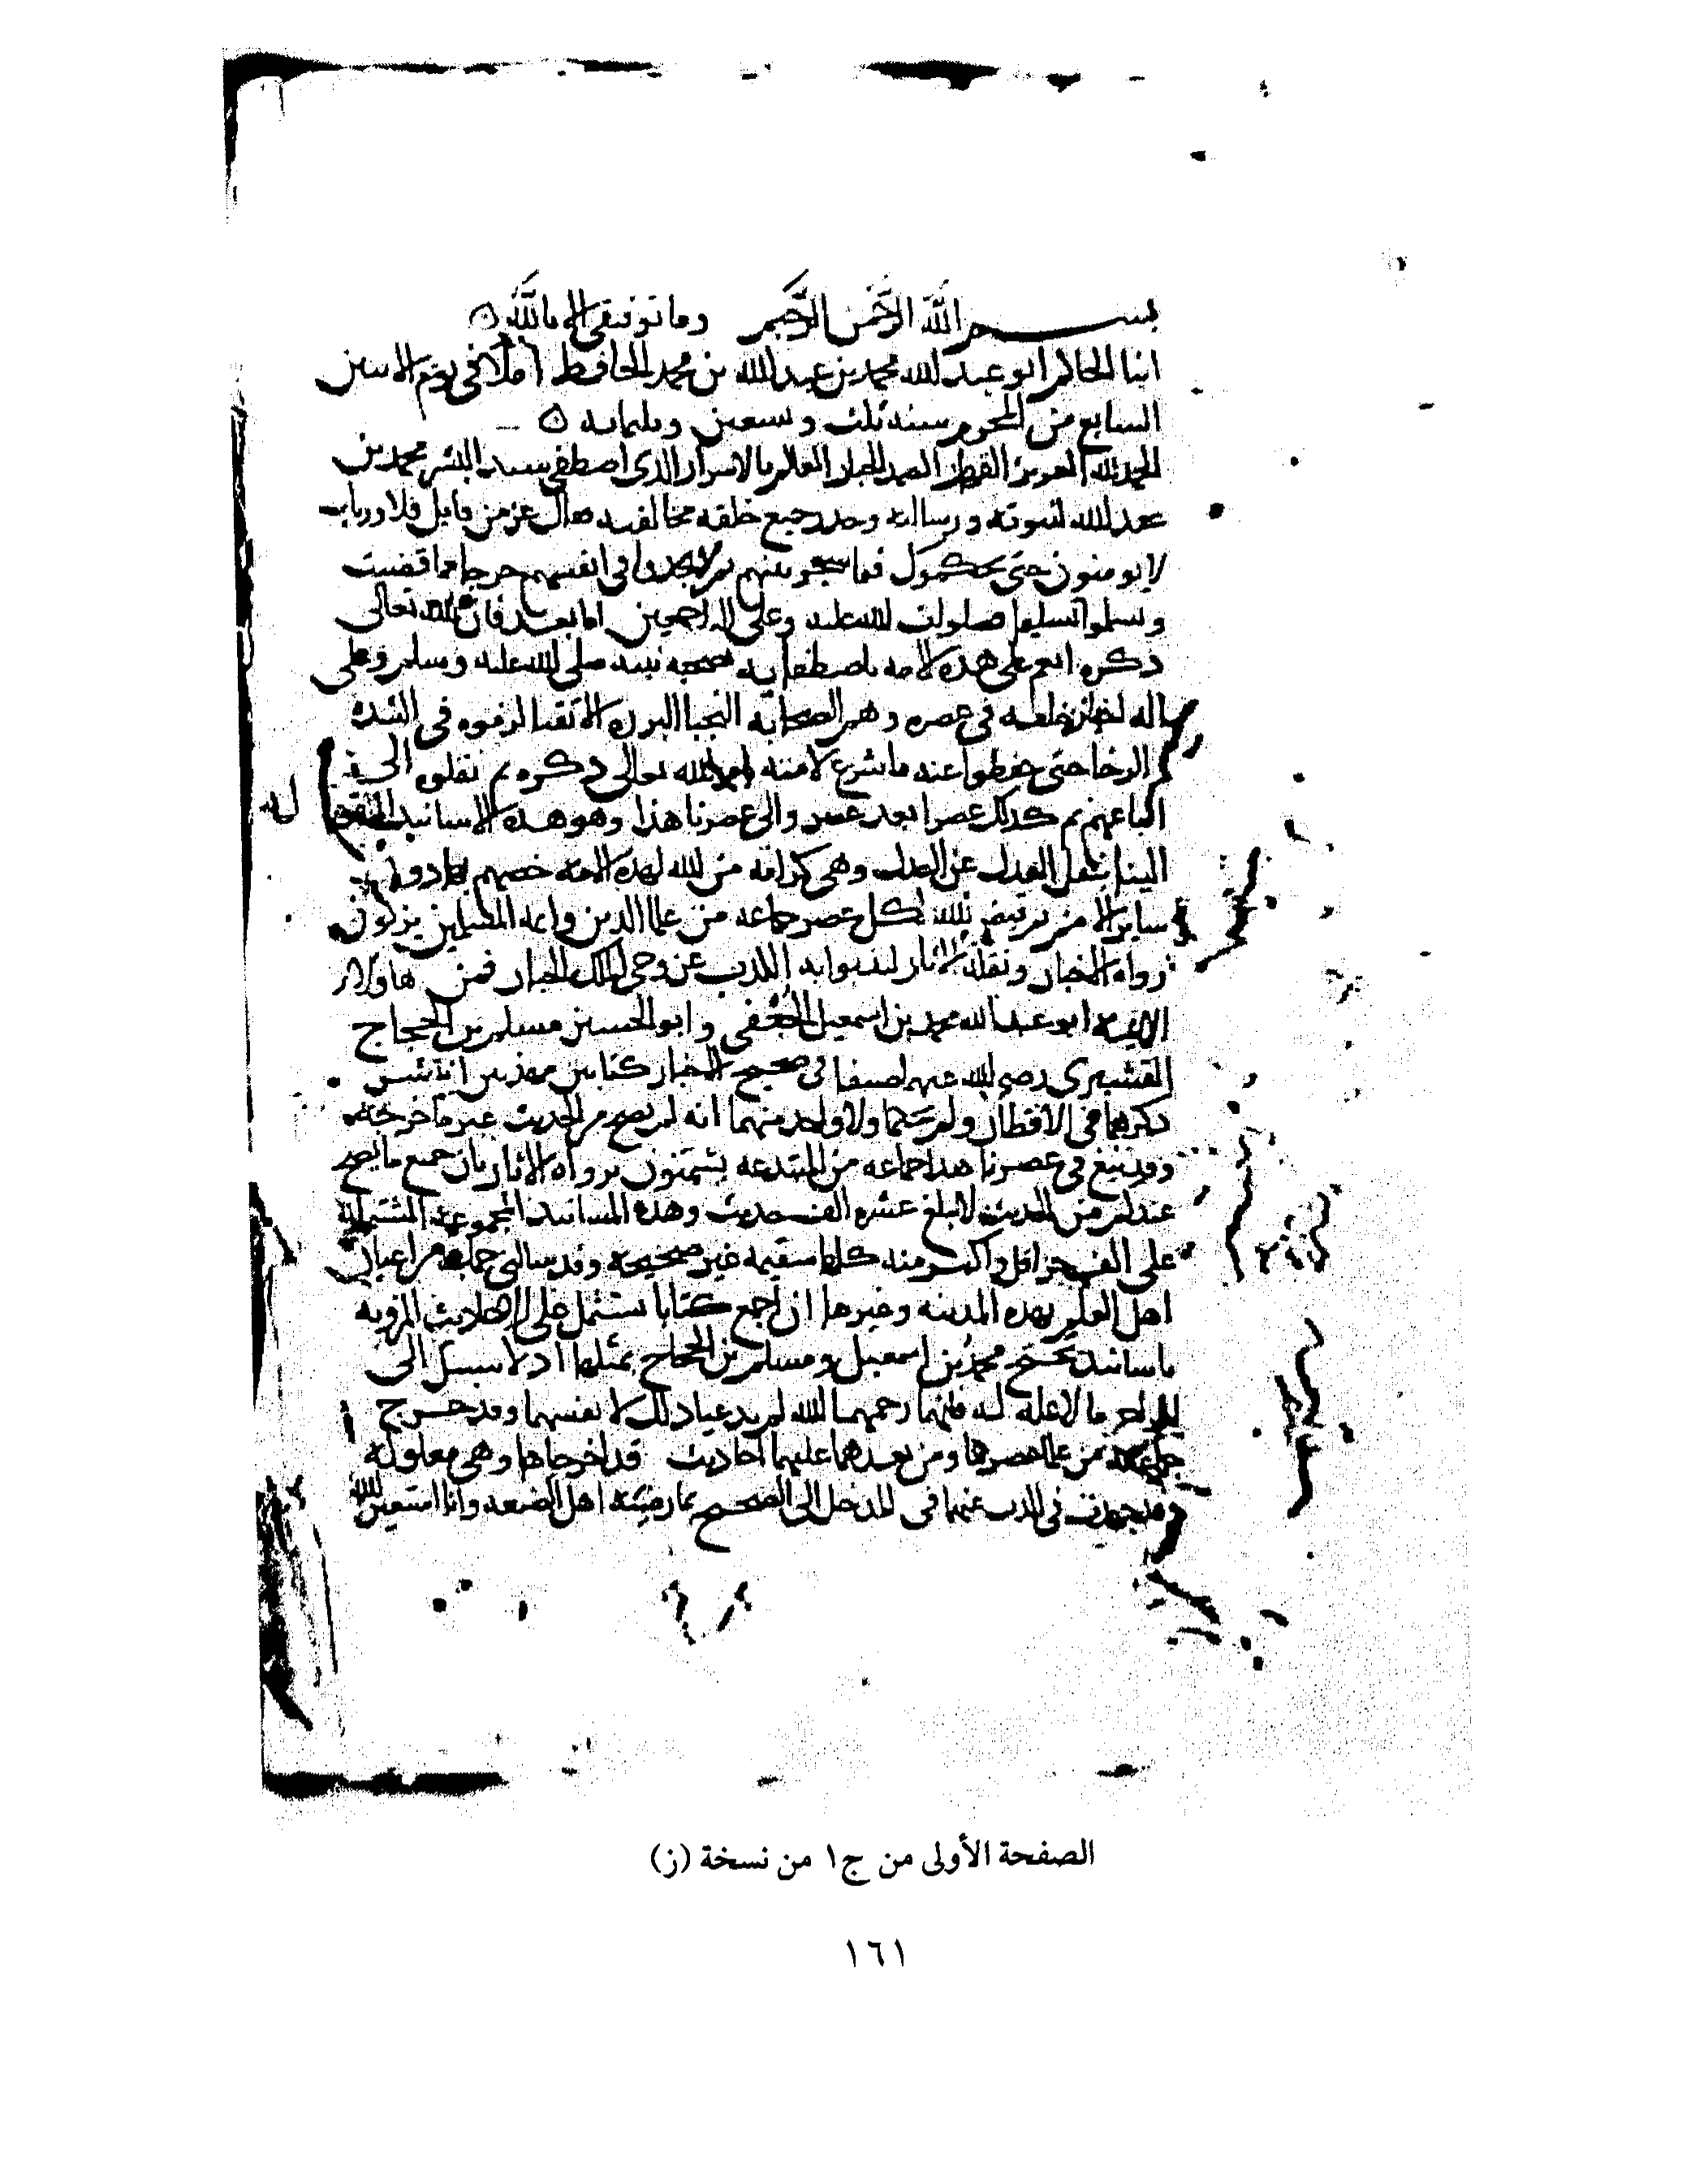 بسم الله الرحمن الرحيم وما توفيقي الا بالله
انبا الحاكم ابو عبد الله محمد بن عبد الله بن محمد الحافظ املا في يوم الاثنين
السابع من المحرم سنة ثلث وسبعين وثلثمايه
الحمد لله العزيز القهار الصمد الجبار العالم بالاسرار الذي اصطفى سيد البشر محمد بن
عبد الله لنبوته ورسالته وحذر جميع خلقه مخالفته فقال عز من قايل فلا وربك
لا يومنون حتى يحكموك فيما شجر بينهم ثم لا يجدوا في انفسهم حرجا مما قضيت
ويسلموا تسليما صلوات الله عليه وعلى اله اجمعين اما بعد فان الله تعالى
ذكره انعم على هذه الامه باصطفايه بصحبة نبيه صلى الله عليه وسلم وعلى
اله اخيار خلقه في عصره وهم الصحابة النجبا البررة الاتقيا لزموه في الشدة
الرخا حتى حفظوا عنه ما شرع لامته بامر الله تعالى ذكره ثم نقلوه الى
اتباعهم ثم كذلك عصرا بعد عصر والى عصرنا هذا وهو هذه الاسانيد المنقولة
الينا بنقل العدل عن العدل وهي كرامة من الله لهذه الامة خصهم بها دون
ساير الامم ثم قيض الله لكل عصر جماعة من علما الدين وايمة المسلمين يزكون
رواة الاخبار ونقلة الاثار ليذبوا به الكذب عن وحي الملك الجبار فمن هاولاء
الايمة ابو عبد الله محمد بن اسمعيل الجعفي وابو الحسين مسلم بن الحجاج
القشيري رضي الله عنهما صنفا في صحيح الاخبار كتابين مهذبين انتشر
ذكرهما في الاقطار ولم يحكما ولا واحد منهما انه لم يصح من الحديث غير ما خرجه
وقد نبغ في عصرنا هذا جماعة من المبتدعة يشمتون برواة الاثار بان جميع ما يصح
عندكم من الحديث لا يبلغ عشرة الف حديث وهذه المسانيد المجموعة المشتملة
على الف جز اقل واكثر منه كلها سقيمة غير صحيحة وقد سالني جماعة من اعيان
اهل العلم بهذه المدينة وغيرها ان اجمع كتابا يشتمل على الاحاديث المروية
باسانيد يحتج محمد بن اسمعيل ومسلم بن الحجاج بمثلها اذ لا سبيل الى
اخراج ما لا علة له فانهما رحمهما الله لم يدعيا ذلك لانفسهما وقد خرج
جماعة من علما عصرهما ومن بعدهما عليهما احاديث قد اخرجاها وهي معلولة
وقد جهدت في الذب عنهما في المدخل الى الصحيح بما رضيته اهل الصنعة وانا استعين الله
الصفحة الأولى من ج١ من نسخة (ز)
١٦١